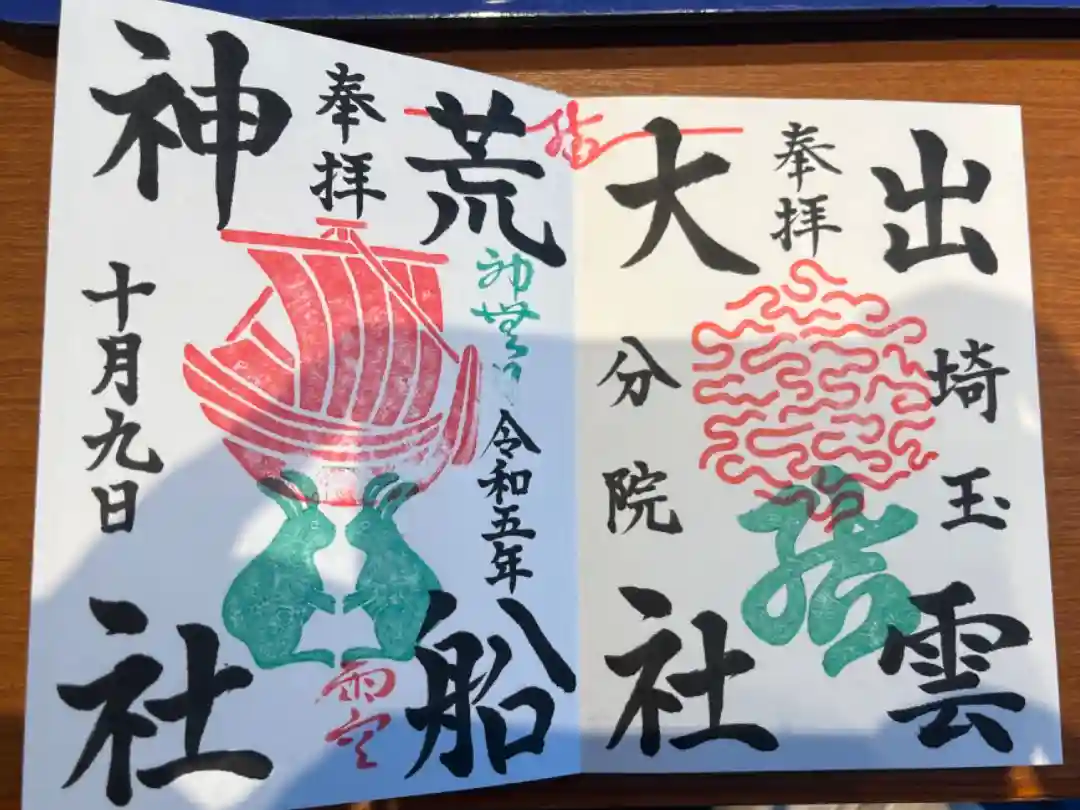 出雲
埼玉
奉拝
結
大社
分院
結
荒船
神無月
令和五年
奉拝
神社
十月九日